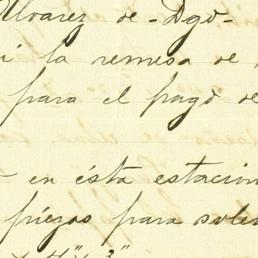 Alvarez de - Dgo -
i la remesa de
para el pago de
en ésta estación
piezas para solea
y 4" x 3"